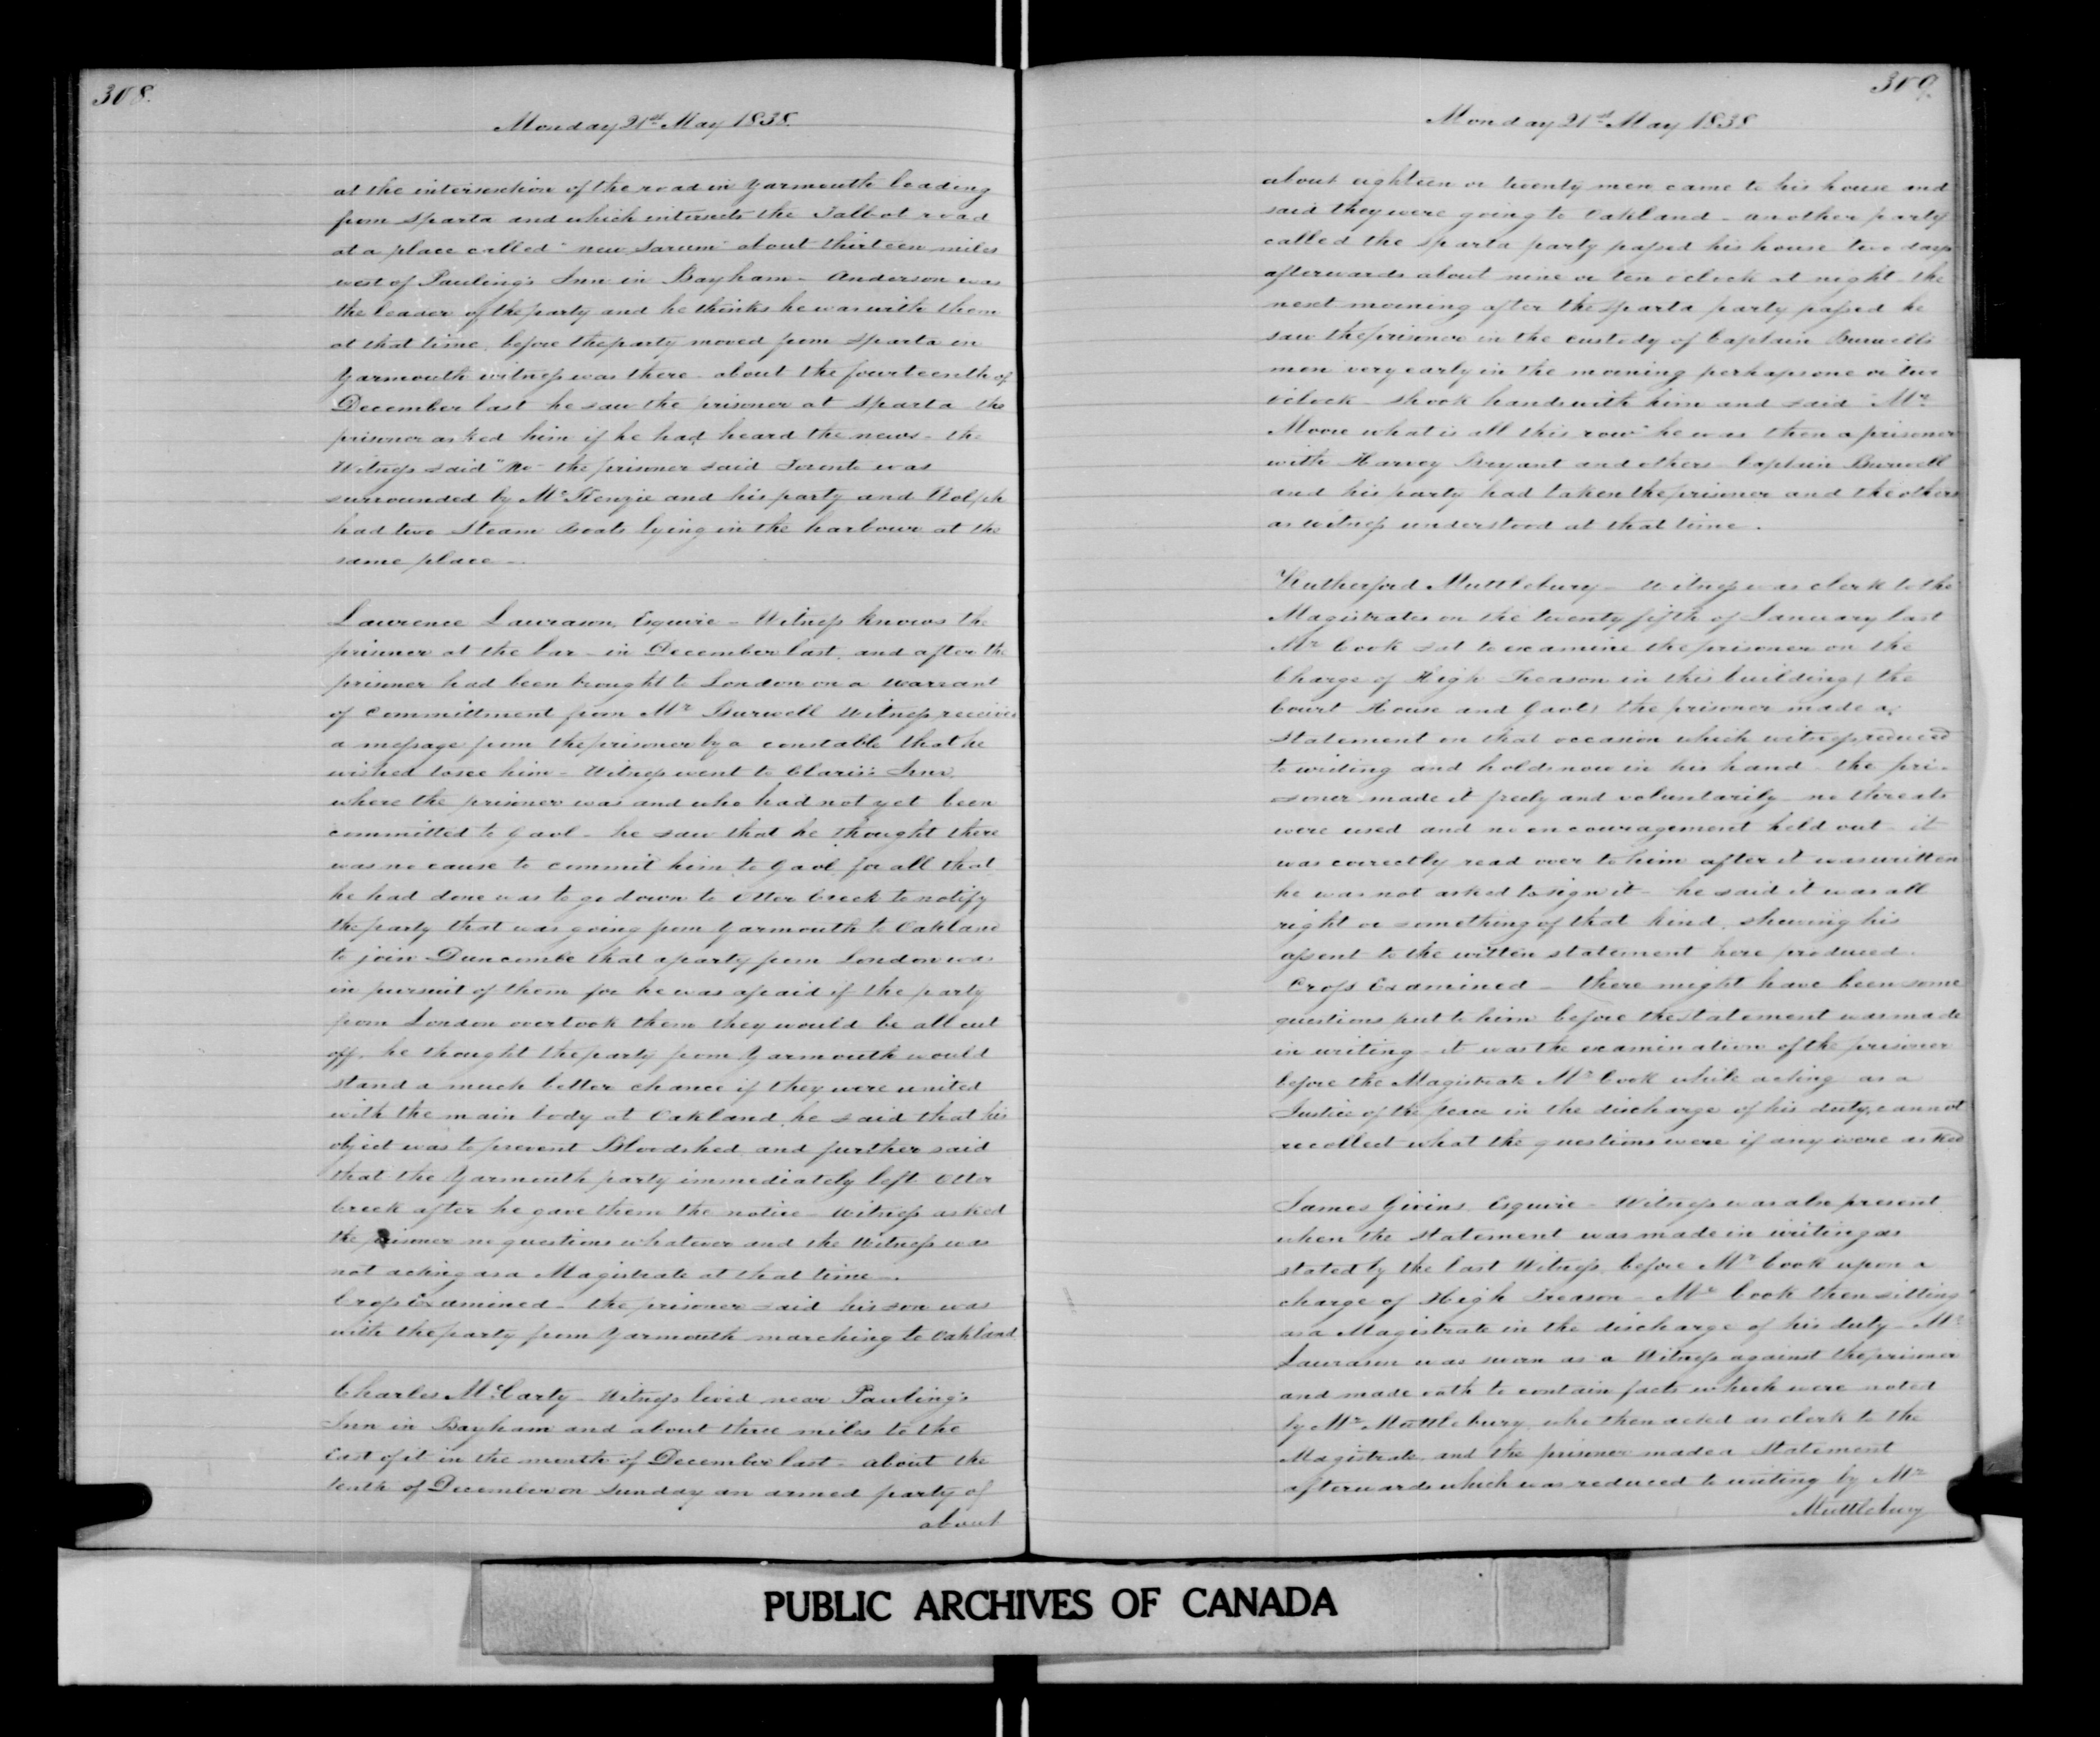 308.
Monday 21st May 1838.
at the intersection of the road in Yarmouth leading
from Sparta and which intersects the Talbot road
at a place called "new Sarum" about thirteen miles
west of Pauling's Inn in Bayham - Anderson was
the leader of the party and he thinks he was with them
at that time. before the party moved from Sparta in
Yarmouth witness was there - about the fourteenth of
December last he saw the prisoner at Sparta the
prisoner asked him if he had heard the news - the
Witness said "No - the prisoner said Toronto was
surrounded by McKenzie and his party and Rolph
had two Steam Boats lying in the harbour at the
same place -
Lawrence Lawrason, Esquire - Witness knows the
prisoner at the bar - in December last, and after the
prisoner had been brought to London on a warrant
of Committment from Mr Burwell Witness received
a message from the prisoner by a constable that he
wished to see him - Witness went to Claris's Inn,
where the prisoner was and who had not yet been
committed to Gaol - he saw that he thought there
was no cause to commit him to Gaol for all that
he had done was to go down to Otter Creek to notify
the party that was going from Yarmouth to Oakland
to join Duncombe that a party from London was
in pursuit of them for he was afraid if the party
from London overtook them they would be all cut
off. he thought the party from Yarmouth would
stand a much better chance if they were united
with the main body at Oakland, he said that his
object was to prevent Bloodshed and further said
that the Yarmouth party immediately left Otter
Creek after he gave them the notice - Witness asked
the prisoner no questions whatever and the Witness was
not acting as a Magistrate at that time -
Cross Examined - the prisoner said his son was
with the party from Yarmouth marching to Oakland
Charles McCarty - Witness lived near Pauling's
Inn in Bayham and about three miles to the
East of it in the month of December last - about the
tenth of December on Sunday an armed party of
about
309.
Monday 21st May 1838
about eighteen or twenty men came to his house and
said they were going to Oakland - another party
called the Sparta party passed his house two days
afterwards about nine or ten o'clock at night - the
next morning after the Sparta party passed he
saw the prisoner in the custody of Captain Burwell's
men very early in the morning perhaps one or two
o'clock - shook hands with him and said "Mr
Moore what is all this row" he was then a prisoner
with Harvey Bryant and others - Captain Burwell
and his party had taken the prisoner and the others
as witness understood at that time.
Rutherford Muttlebury - Witness was clerk to the
Magistrates on the twenty fifth of January last
Mr Cook sat to examine the prisoner on the
Charge of High Treason in this building (the
Court House and Gaol) the prisoner made a
statement on that occasion which witness reduced
to writing and holds now in his hand - the pri-
soner made it freely and voluntarily - no threats
were used and no encouragement held out - it
was correctly read over to him after it was written
he was not asked to sign it - he said it was all
right or something of that kind, shewing his
assent to the written statement here produced.
Cross Examined - there might have been some
questions put to him before the statement was made
in writing - it was the examination of the prisoner
before the Magistrate Mr Cook while acting as a
Justice of the Peace in the discharge of his duty, cannot
recollect what the questions were if any were asked
James Givins Esquire - Witness was also present
when the statement was made in writing as
stated by the last Witness, before Mr Cook upon a
charge of High Treason - Mr Cook then sitting
as a Magistrate in the discharge of his duty - Mr
Lawrason was sworn as a Witness against the prisoner
and made oath to contain facts which were noted
by Mr Muttlebury, who then acted as clerk to the
Magistrate and the prisoner made a Statement
afterwards which was reduced to writing by Mr
Muttlebury
PUBLIC ARCHIVES OF CANADA